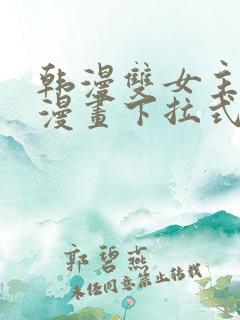 韩漫雙女主
漫畫下拉式
郭碧燕
未经同意禁止转载